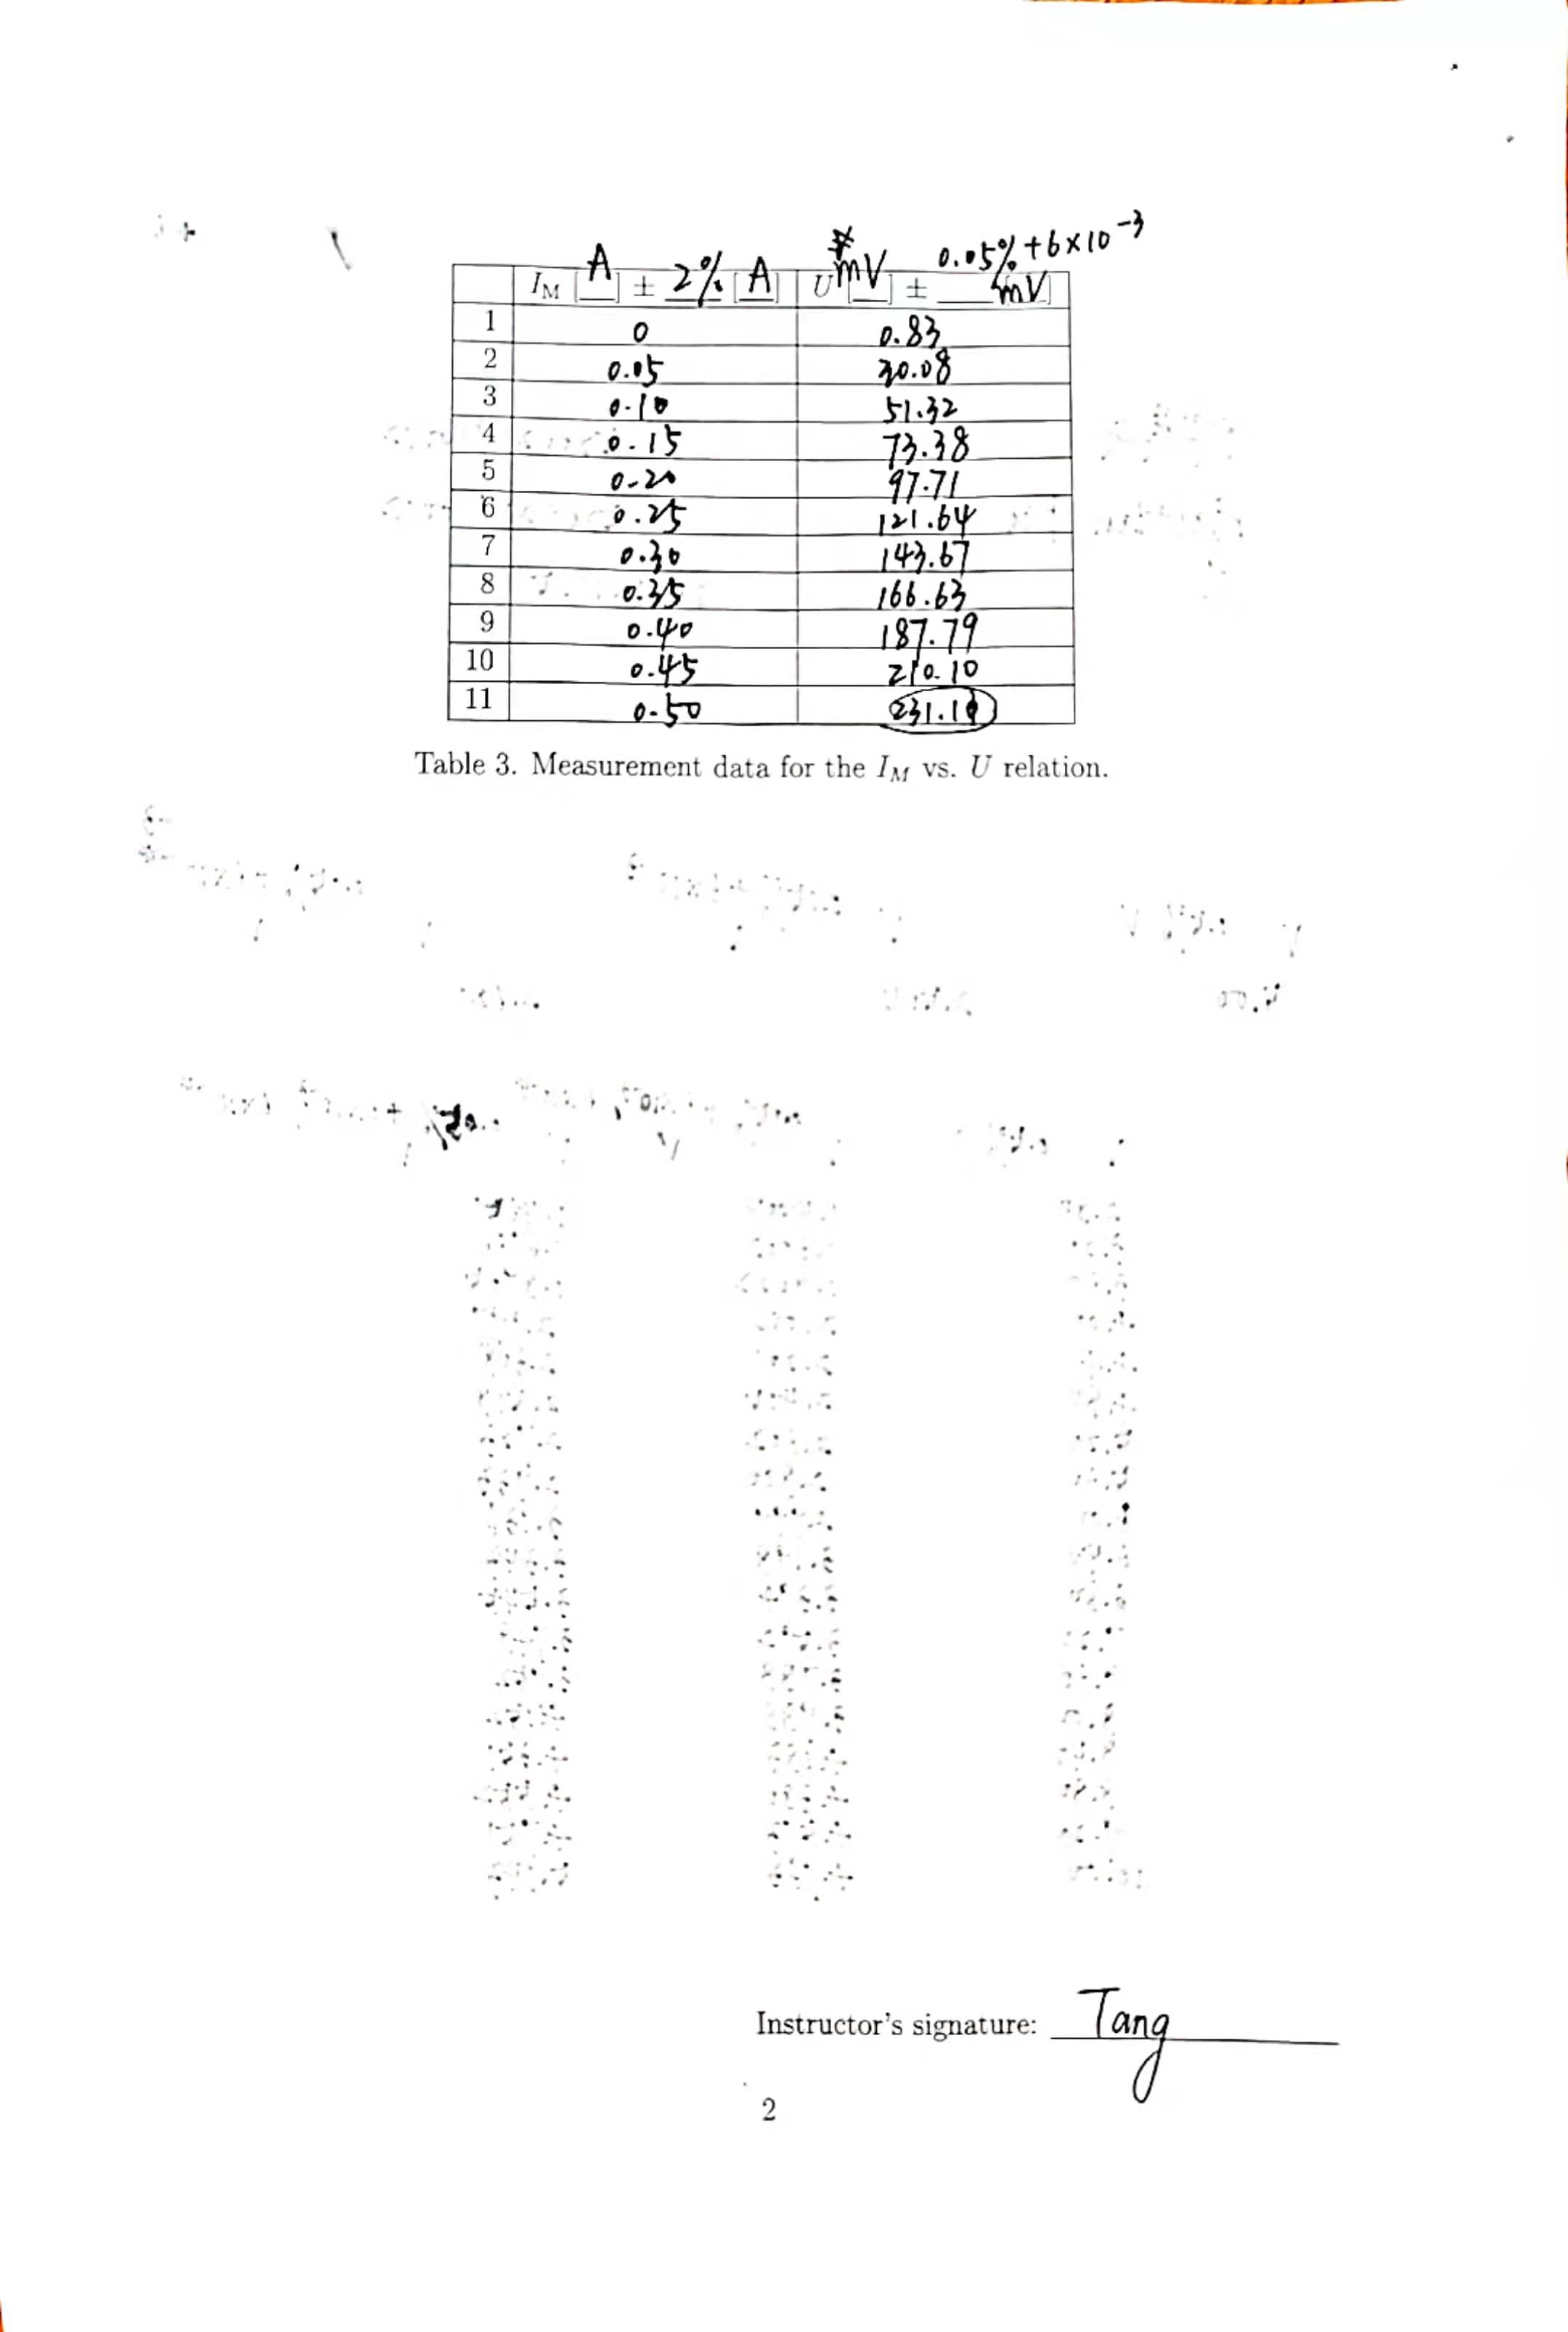 I_M [A] ± 2% [A] U [mV] ± 0.05% + 6×10⁻³ [mV]
1 0 0.83
2 0.05 30.08
3 0.10 51.32
4 0.15 73.38
5 0.20 97.71
6 0.25 121.64
7 0.30 143.67
8 0.35 166.63
9 0.40 187.79
10 0.45 210.10
11 0.50
Table 3. Measurement data for the I_M vs. U relation.
Instructor's signature: Tang
2